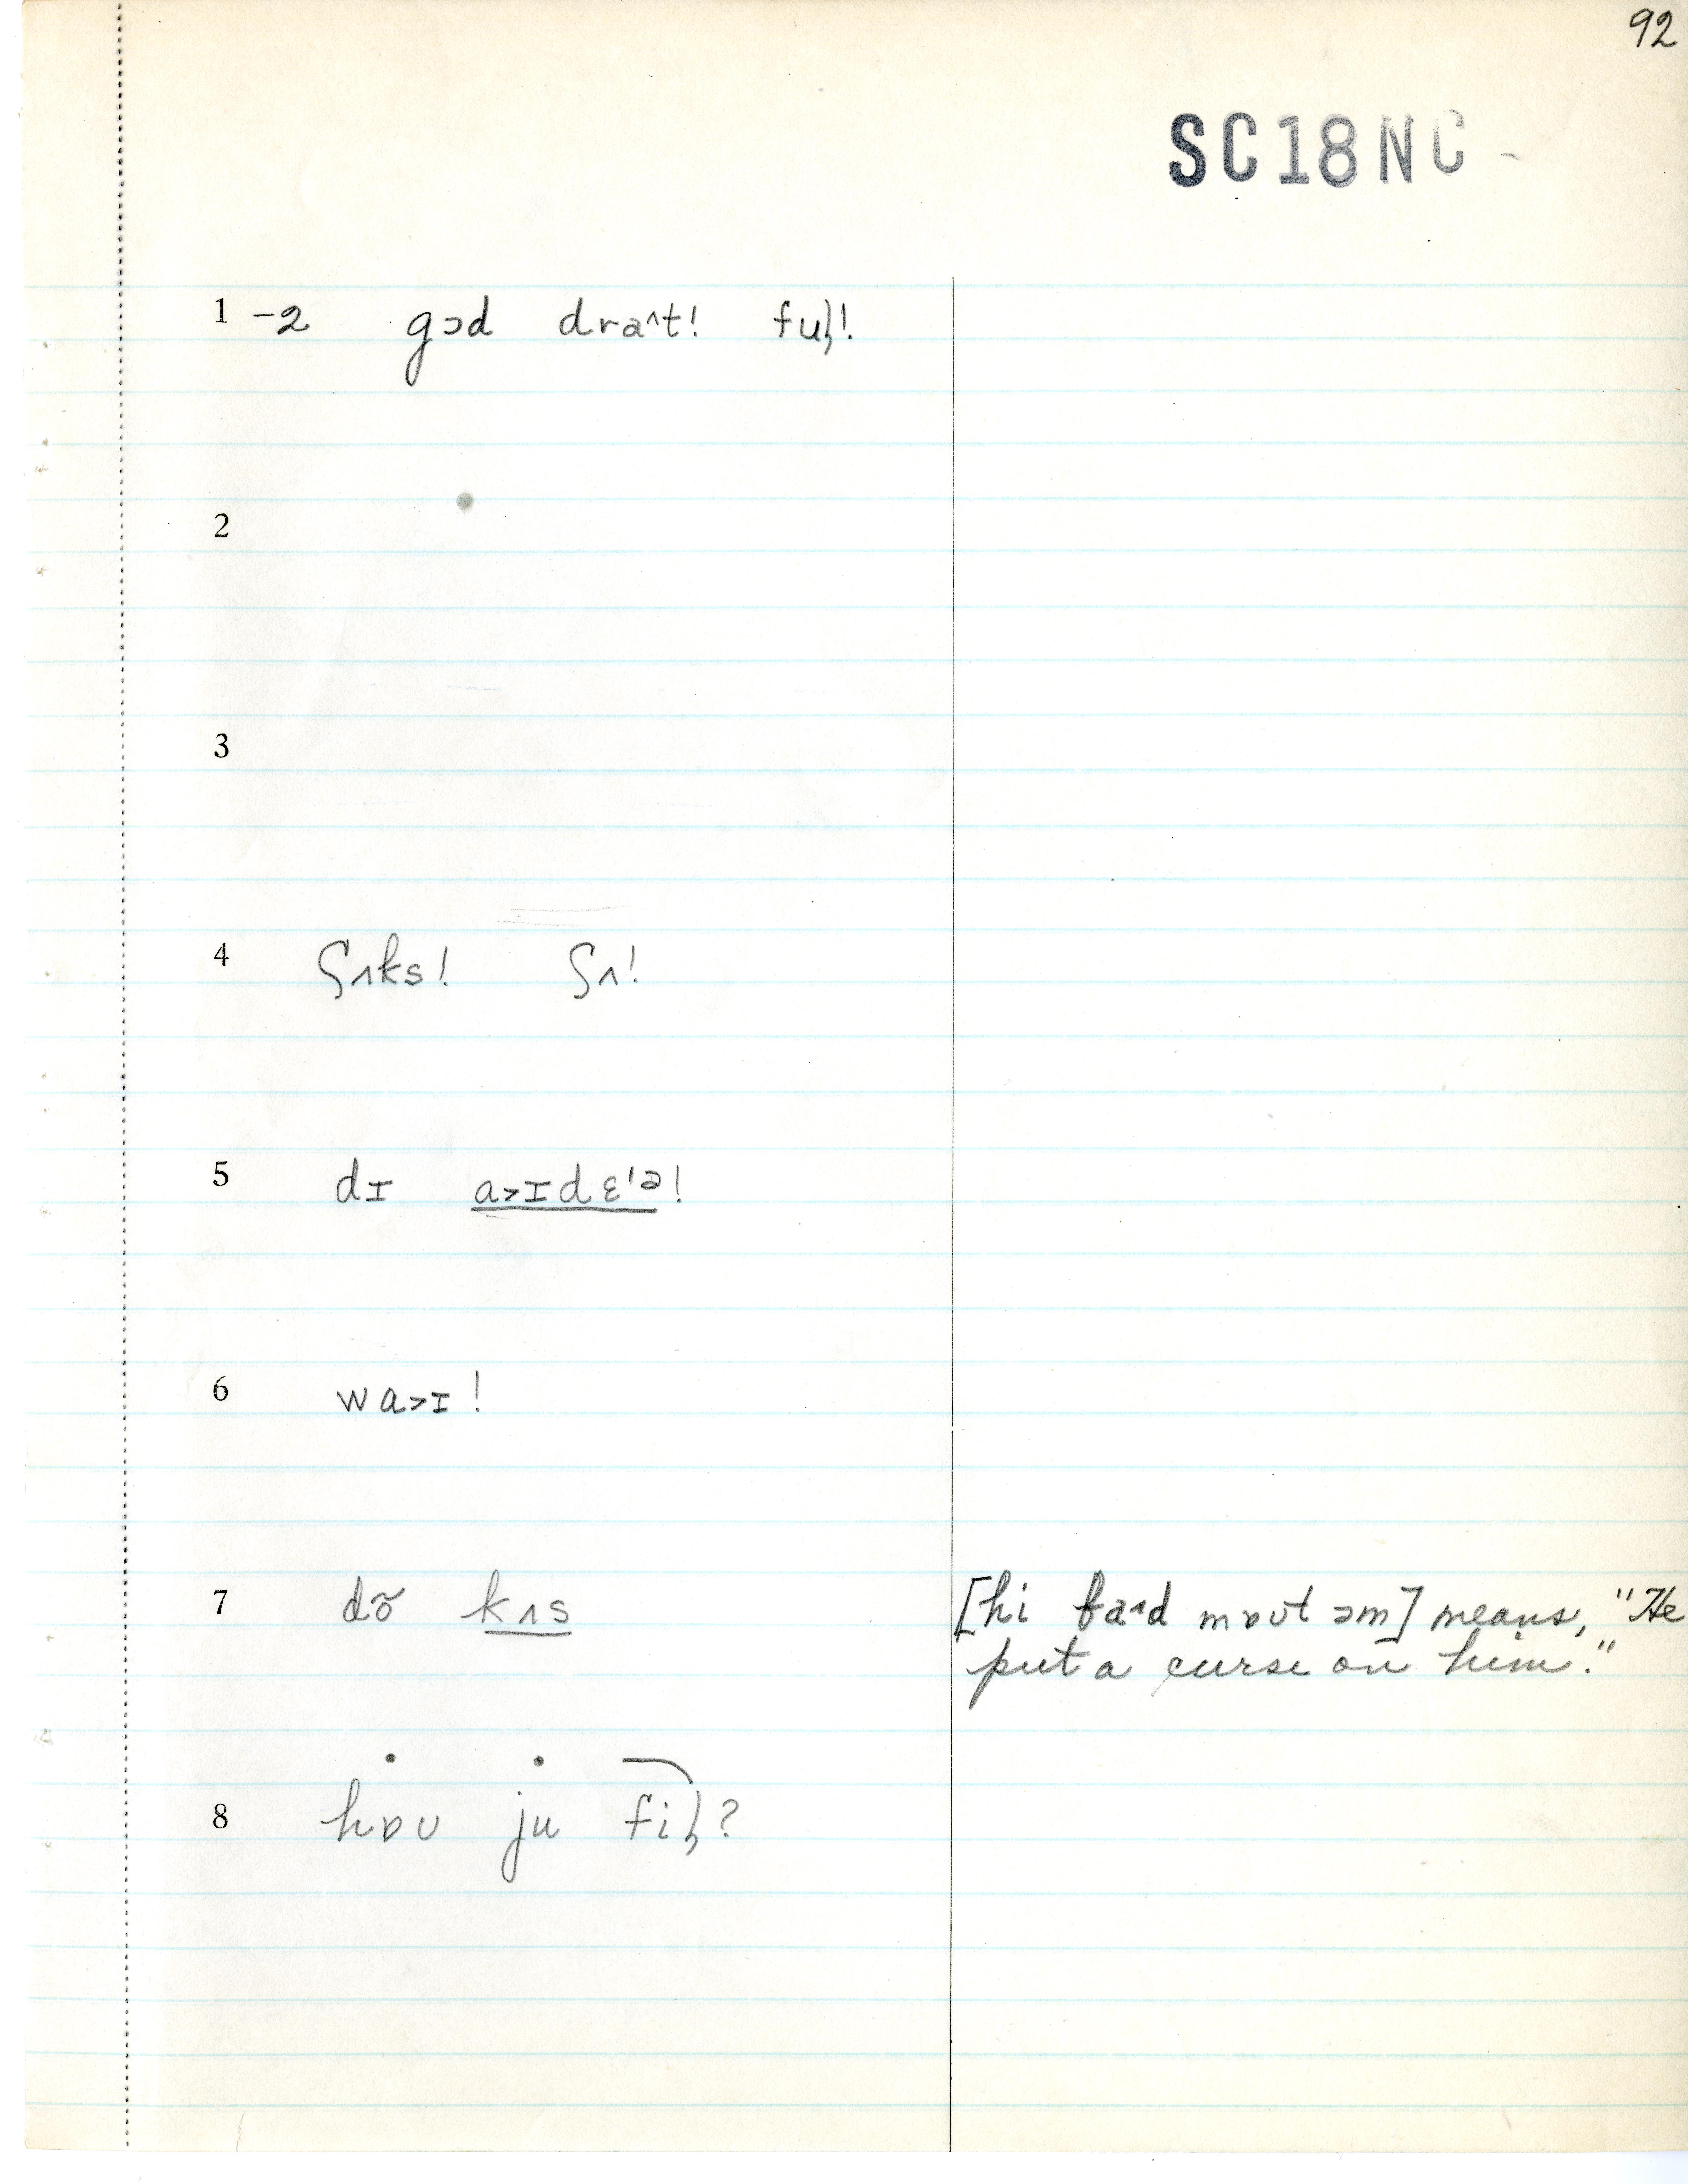 92
SC18NC
1 -2 gɔd dra^t! fuɫ!
2
3
4 ʃʌks! ʃʌ!
5 dɪ a˃ɪdɛ'ə!
6 wa˃ɪ!
7 dõ kʌs [hi
bad mɒʊt əm] means, "He
put a curse on him."
8 hɒʊ ju fiɫ?